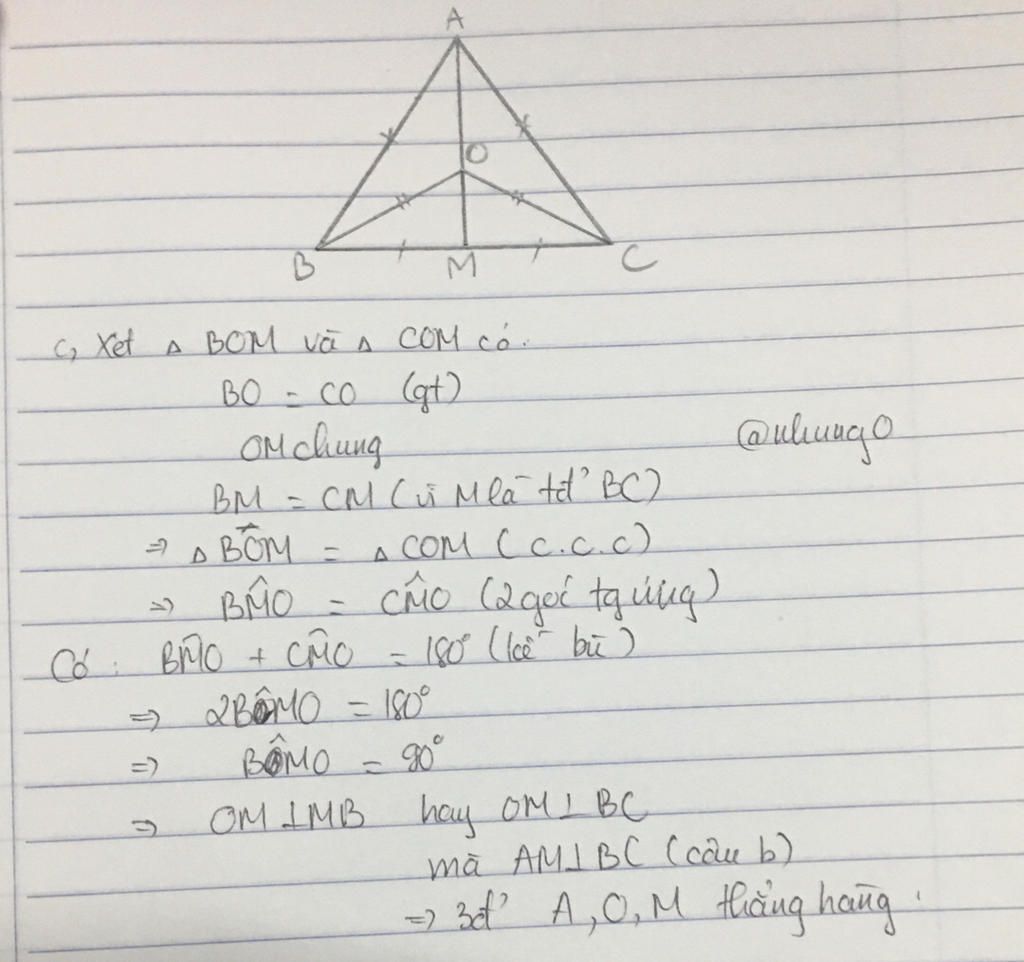 A
O
B M C
c, Xet △ BOM và △ COM có:
BO = CO (gt)
OM chung
@nhungO
BM = CM (vì M là tđ' BC)
⇒ △ BOM = △ COM (c.c.c)
⇒ BM̂O = CM̂O (2 goć tg ứng)
Có: BM̂O + CM̂O = 180° (kề bù)
⇒ 2BM̂O = 180°
⇒ BM̂O = 90°
⇒ OM ⊥ MB hay OM ⊥ BC
mà AM ⊥ BC (câu b)
⇒ 3đ' A, O, M thẳng hàng.